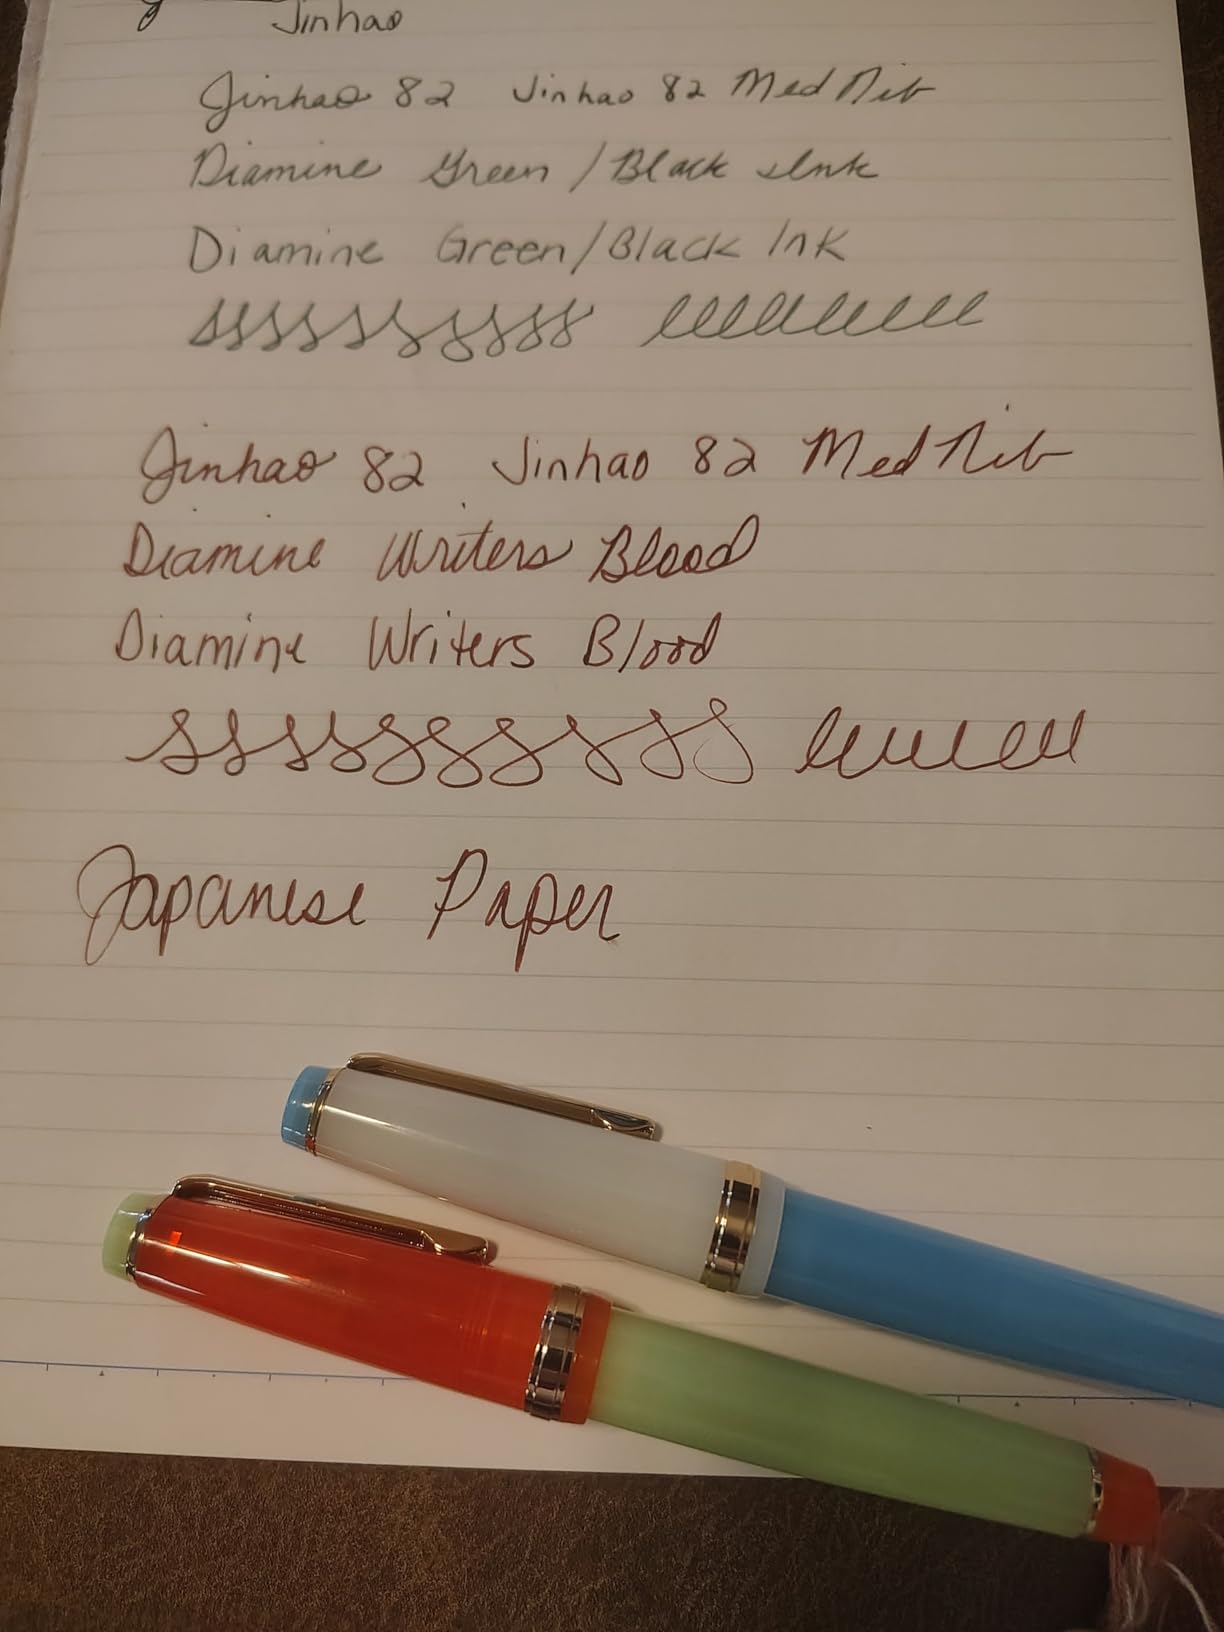 Jinhao
Jinhao 82 Jinhao 82 Med Nib
Diamine Green / Black Ink
Diamine Green/Black Ink
Jinhao 82 Jinhao 82 Med Nib
Diamine Writers Blood
Diamine Writers Blood
Japanese Paper